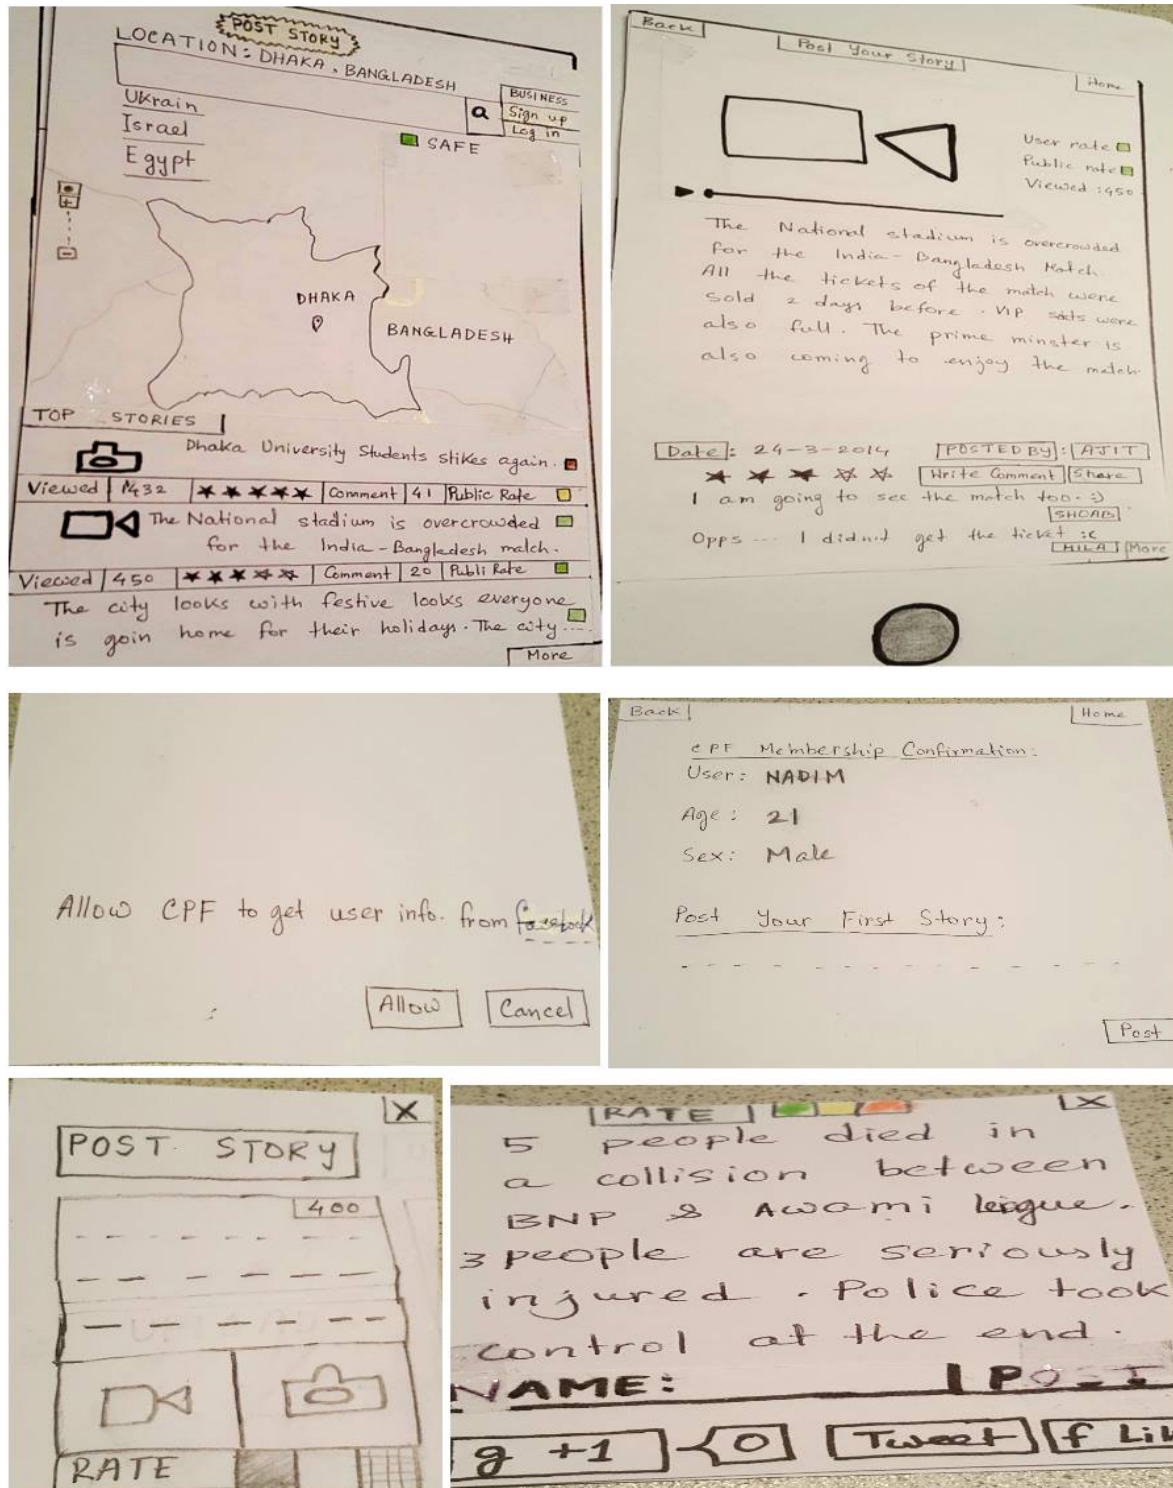 POST STORY
LOCATION: DHAKA, BANGLADESH
a
BUSINESS
Sign up
Log in
Ukrain
Israel
Egypt
SAFE
+
DHAKA
BANGLADESH
-
TOP STORIES
Dhaka University Students stikes again.
Viewed 1432 ★★★★★ Comment 41 Public Rate
The National stadium is overcrowded
for the India-Bangladesh match.
Viewed 450 ★★★☆☆ Comment 20 Publi Rate
The city looks with festive looks everyone
is goin home for their holidays. The city ....
More
Back
Post Your Story
Home
User rate
Public rate
Viewed: 450
The National stadium is overcrowded
for the India-Bangladesh Match.
All the tickets of the match were
sold 2 days before. VIP were
also full. The prime minster is
also coming to enjoy the match.
Date: 24-3-2014 POSTED BY: AJIT
★★★☆☆ Write Comment Share
I am going to see the match too. :)
SHOAB
Opps ... I didnot get the ticket :(
MILA More
Allow CPF to get user info. from facebook
Allow Cancel
Back Home
CPF Membership Confirmation:
User: NADIM
Age: 21
Sex: Male
Post Your First Story:
Post
X
POST STORY
400
RATE
RATE X
5 people died in
a collision between
BNP & Awami leigue.
3 people are seriously
injured. Police took
control at the end.
NAME: POST
g +1 0 Tweet f Lik